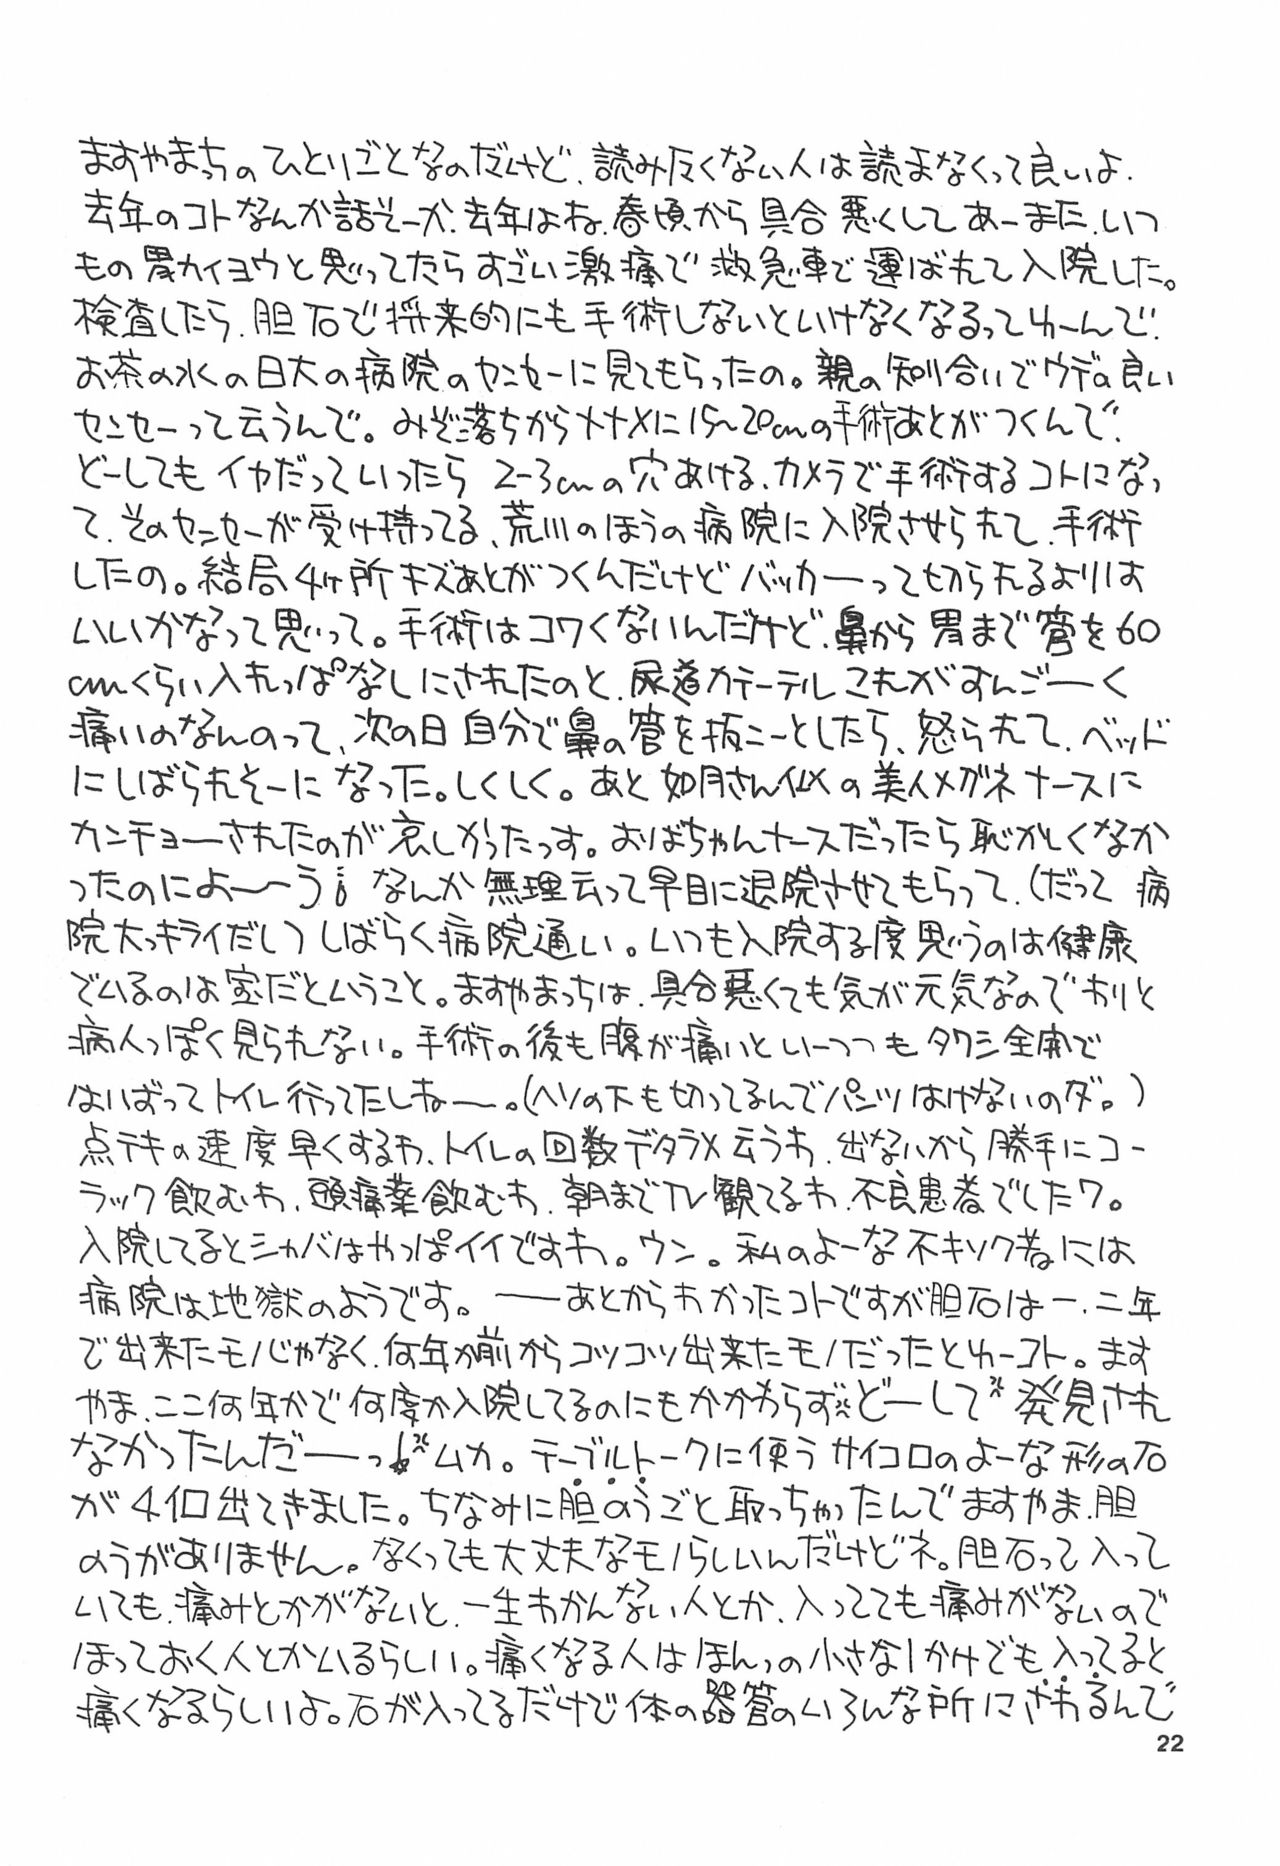 ますやまっちのひとりごとなのだけど、読みたくない人は読まなくって良いよ.
去年のコトなんか話そーか.去年はね.春頃から具合悪くしてあーまた.いつ
もの胃カイヨウと思ってたらすごい激痛で救急車で運ばれて入院した。
検査したら、胆石で将来的にも手術しないといけなくなるってゆーんで.
お茶の水の日大の病院のセンセーに見てもらったの。親の知り合いでウデの良い
センセーって云うんで。みぞ落ちからナナメに15〜20cmの手術あとがつくんで.
どーしてもイヤだっていったら 2-3cmの穴あける、カメラで手術するコトになっ
て.そのセンセーが受け持ってる、荒川のほうの病院に入院させられて.手術
したの。結局4ヶ所キズあとがつくんだけどバッカーって切られるよりは
いいかなって思って。手術はコワくないんだけど.鼻から胃まで管を60
cmくらい入れっぱなしにされたのと、尿道カテーテルこれがすんごーく
痛いのなんのって、次の日自分で鼻の管を抜こーとしたら、怒られて.ベッド
にしばられそーになった。しくしく。あと如月さん似の美人メガネナースに
カンチョーされたのが哀しかったっす。おばちゃんナースだったら恥かしくなか
ったのによ〜う なんか無理云って早目に退院させてもらって.(だって病
院大っキライだし)しばらく病院通い。いつも入院する度思うのは健康
でいるのは宝だということ。ますやまっちは.具合悪くても気が元気なのでわりと
病人っぽく見られない。手術の後も腹が痛いといーつつもタクシ全車で
はいばってトイレ行ってたしねー。(ヘソの下も切ってるんでパンツはけないのダ。)
点テキの速度早くするわ、トイレの回数デタラメ云うわ.出ないから勝手にコー
ラック飲むわ、頭痛薬飲むわ、朝までTV観てるわ.不良患者でしたワ。
入院してるとシャバはやっぱイイですわ。ウン。私のよーな不キソク者には
病院は地獄のようです。──あとからわかったコトですが胆石は一、二年
で出来たモノじゃなく、何年か前からコツコツ出来たモノだったとゆーコト。ます
やま、ここ何年かで何度か入院してるのにもかかわらずどーして発見され
なかったんだーっ!ムカ。テーブルトークに使うサイコロのよーな形の石
が4個出てきました。ちなみに胆のうごと取っちゃったんでますやま、胆
のうがありません。なくっても大丈夫なモノらしいんだけどネ。胆石って入って
いても、痛みとかがないと、一生わかんない人とか、入ってても痛みがないので
ほっておく人とかいるらしい。痛くなる人はほんっの小さな1かけでも入ってると
痛くなるらしいよ。石が入ってるだけで体の器管のいろんな所にさわるんで
22